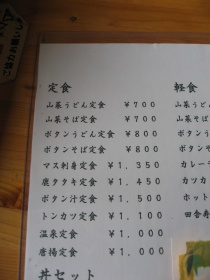 定食
山菜うどん定食 ￥700
山菜そば定食 ￥700
ボタンうどん定食 ￥800
ボタンそば定食 ￥800
マス刺身定食 ￥1,350
鹿タタキ定食 ￥1,450
ボタン汁定食 ￥1,500
トンカツ定食 ￥1,100
温泉定食 ￥1,000
唐揚定食 ￥1,000
丼セット
軽食
山菜う
山菜そ
ボタン
ボタン
カレー
カツカ
ホット
田舎寿